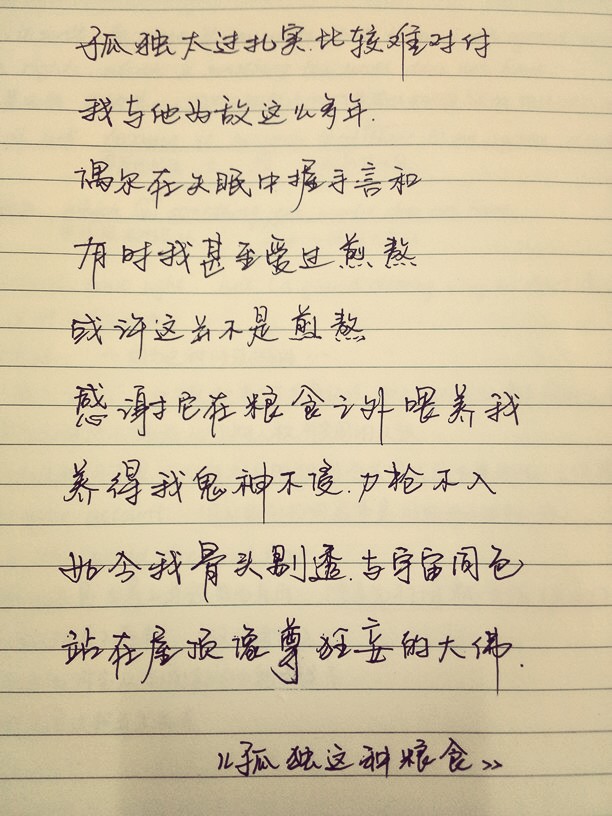 孤独太过扎实.比较难对付
我与他为敌这么多年.
偶尔在失眠中握手言和
有时我甚至爱过煎熬
或许这并不是煎熬
感谢它在粮食之外喂养我
养得我鬼神不侵.刀枪不入
如今我骨头剔透.与宇宙同色
站在屋顶像尊狂妄的大佛.
《孤独这种粮食》